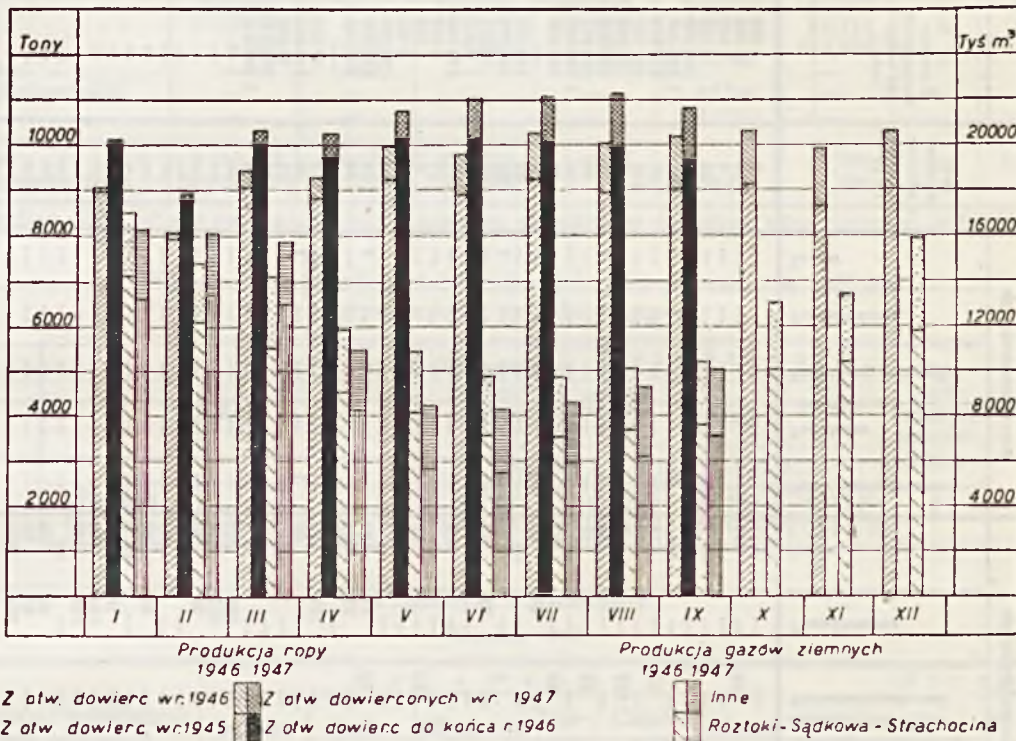 Tony
Tyś m³
10000
20000
8000
16000
6000
12000
4000
8000
2000
4000
I II III IV V VI VII VIII IX X XI XII
Produkcja ropy
1946 1947
Z otw. dowierc w r. 1946
Z otw dowierconych w r. 1947
Z otw dowierc w r. 1945
Z otw dowierc do końca r. 1946
Produkcja gazów ziemnych
1946 1947
Inne
Roztoki-Sądkowa-Strachocina